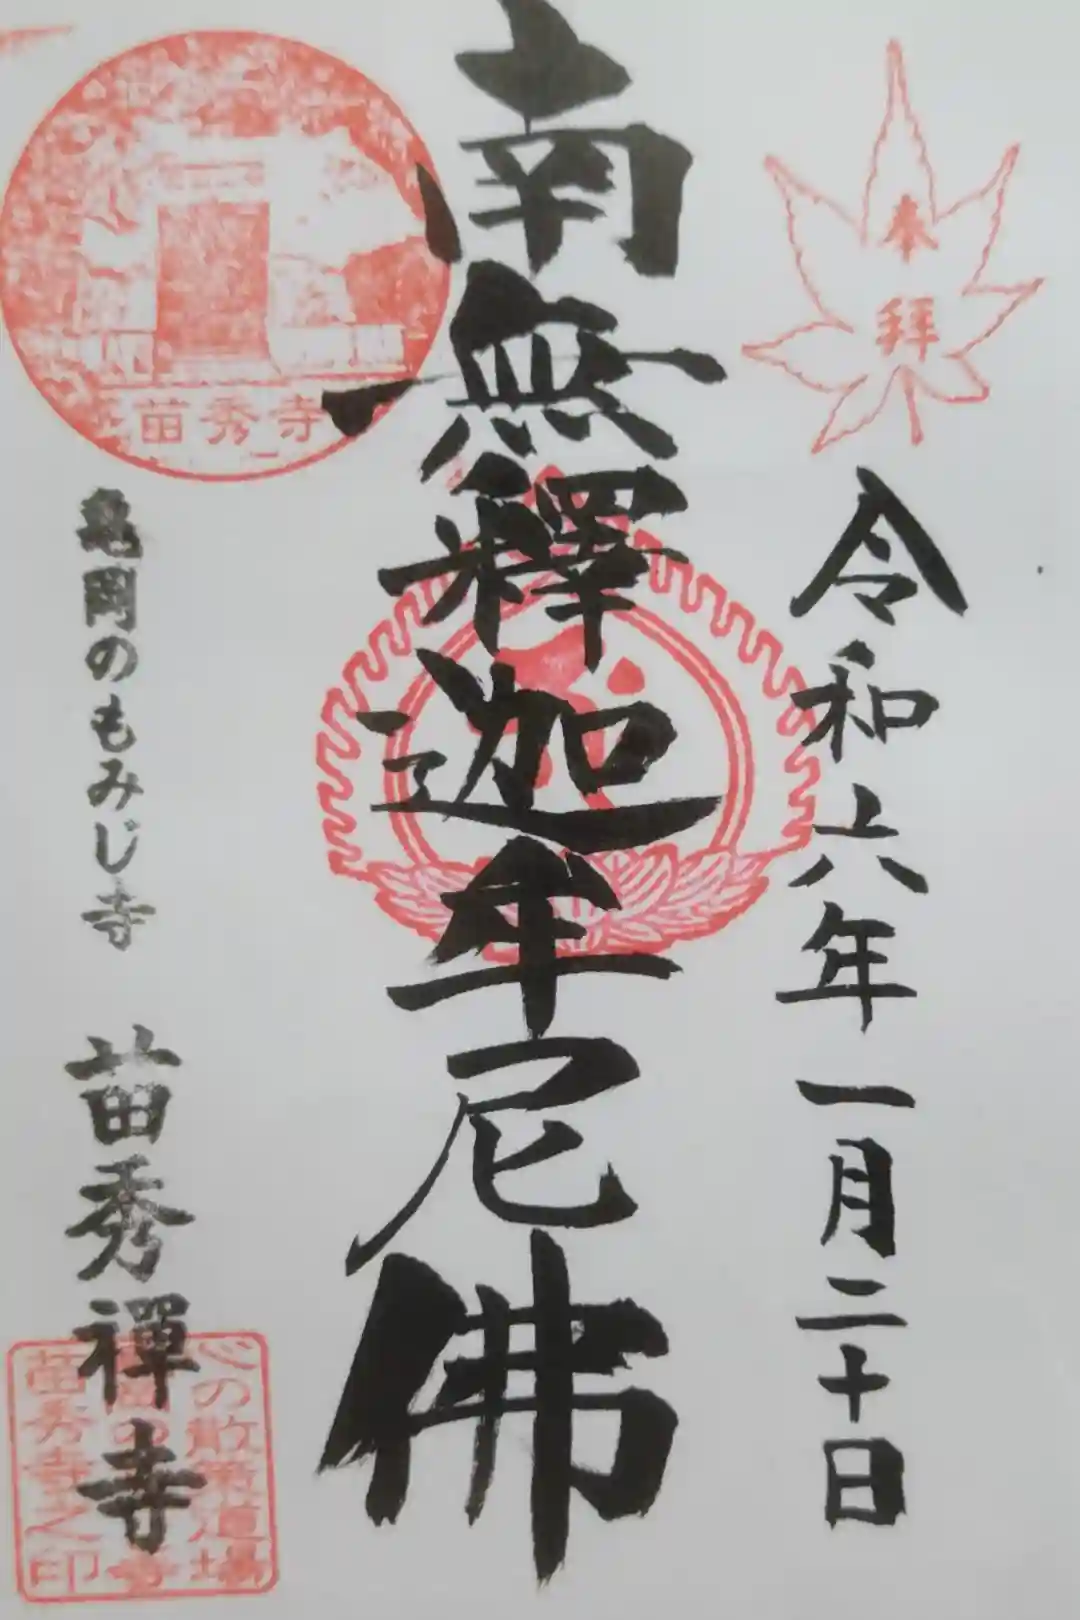 奉拝
令和六年一月二十日
南無釋迦牟尼佛
苗秀寺
亀岡のもみじ寺
苗秀禪寺
心の散策道場
苗秀寺之印